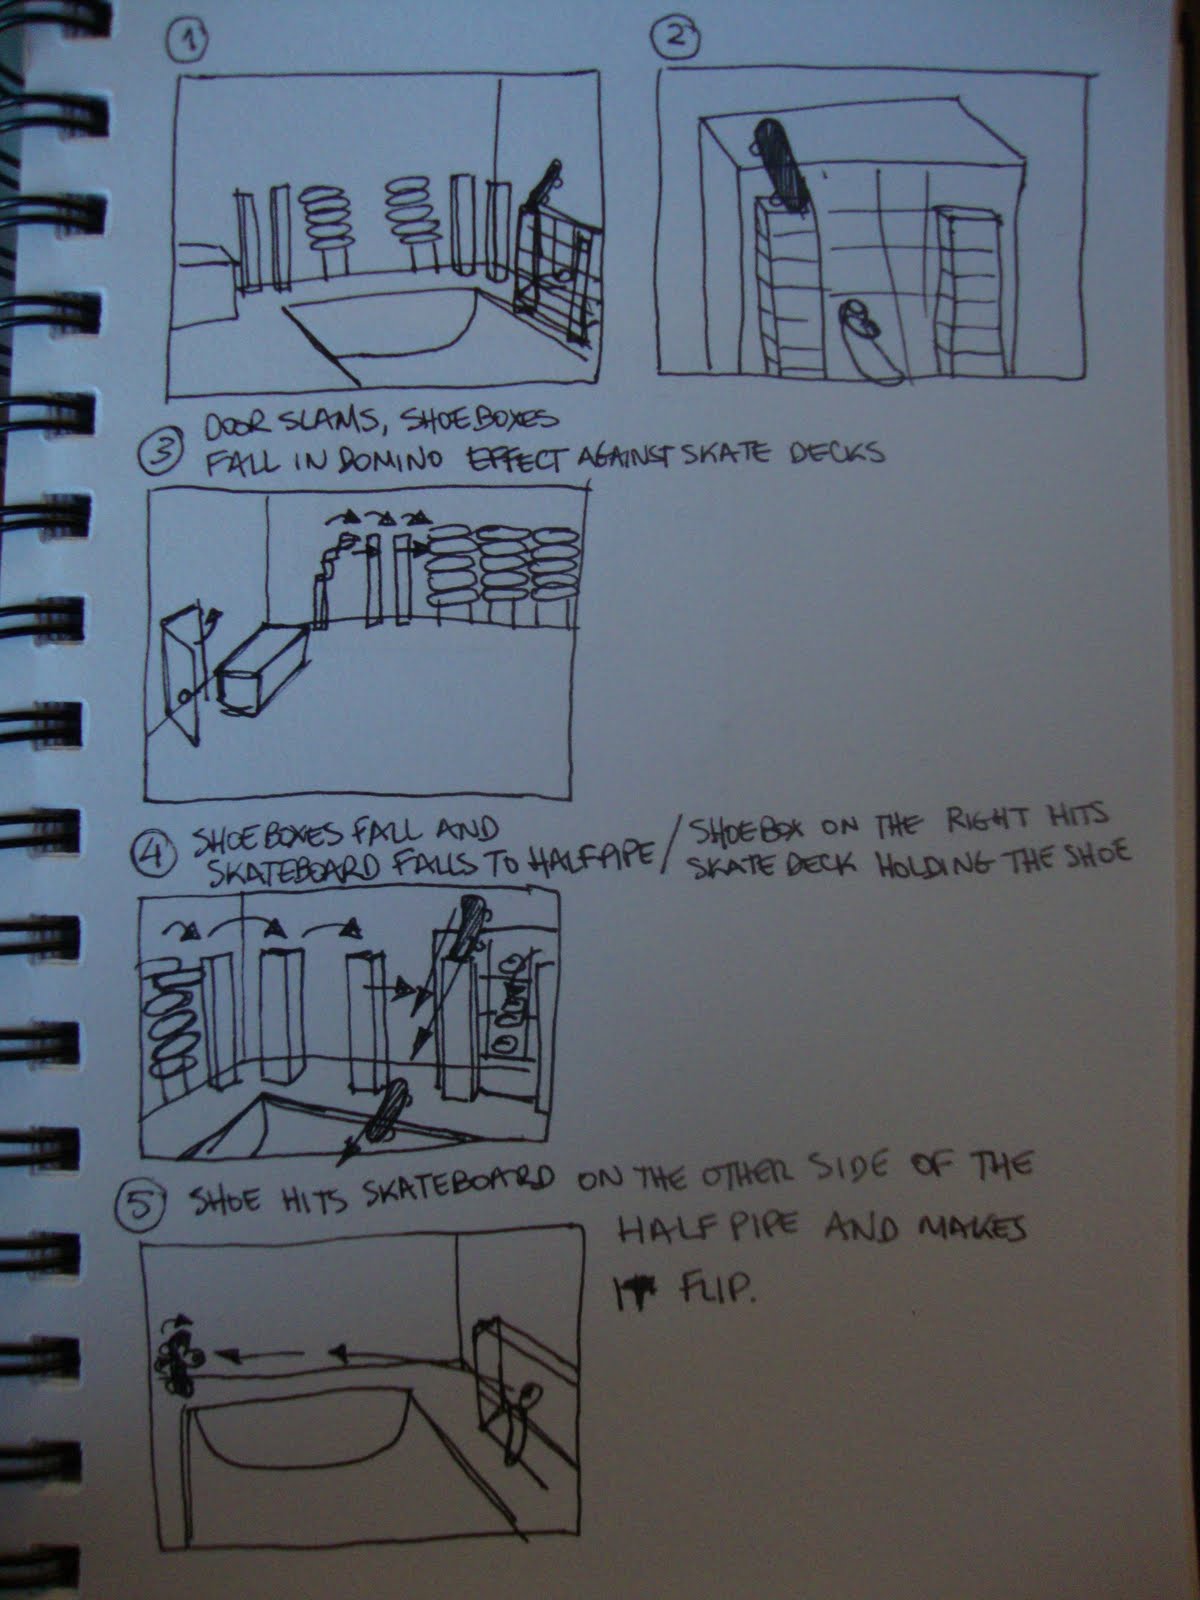 1
2
3 DOOR SLAMS, SHOEBOXES
FALL IN DOMINO EFFECT AGAINST SKATE DECKS
4 SHOEBOXES FALL AND
SKATEBOARD FALLS TO HALFPIPE / SHOEBOX ON THE RIGHT HITS
SKATE DECK HOLDING THE SHOE
5 SHOE HITS SKATEBOARD ON THE OTHER SIDE OF THE
HALFPIPE AND MAKES
IT FLIP.